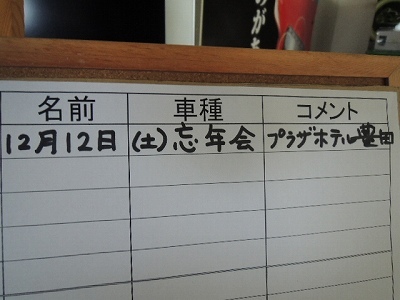 名前 車種 コメント
12月12日 (土)忘年会 プラザホテル豊田